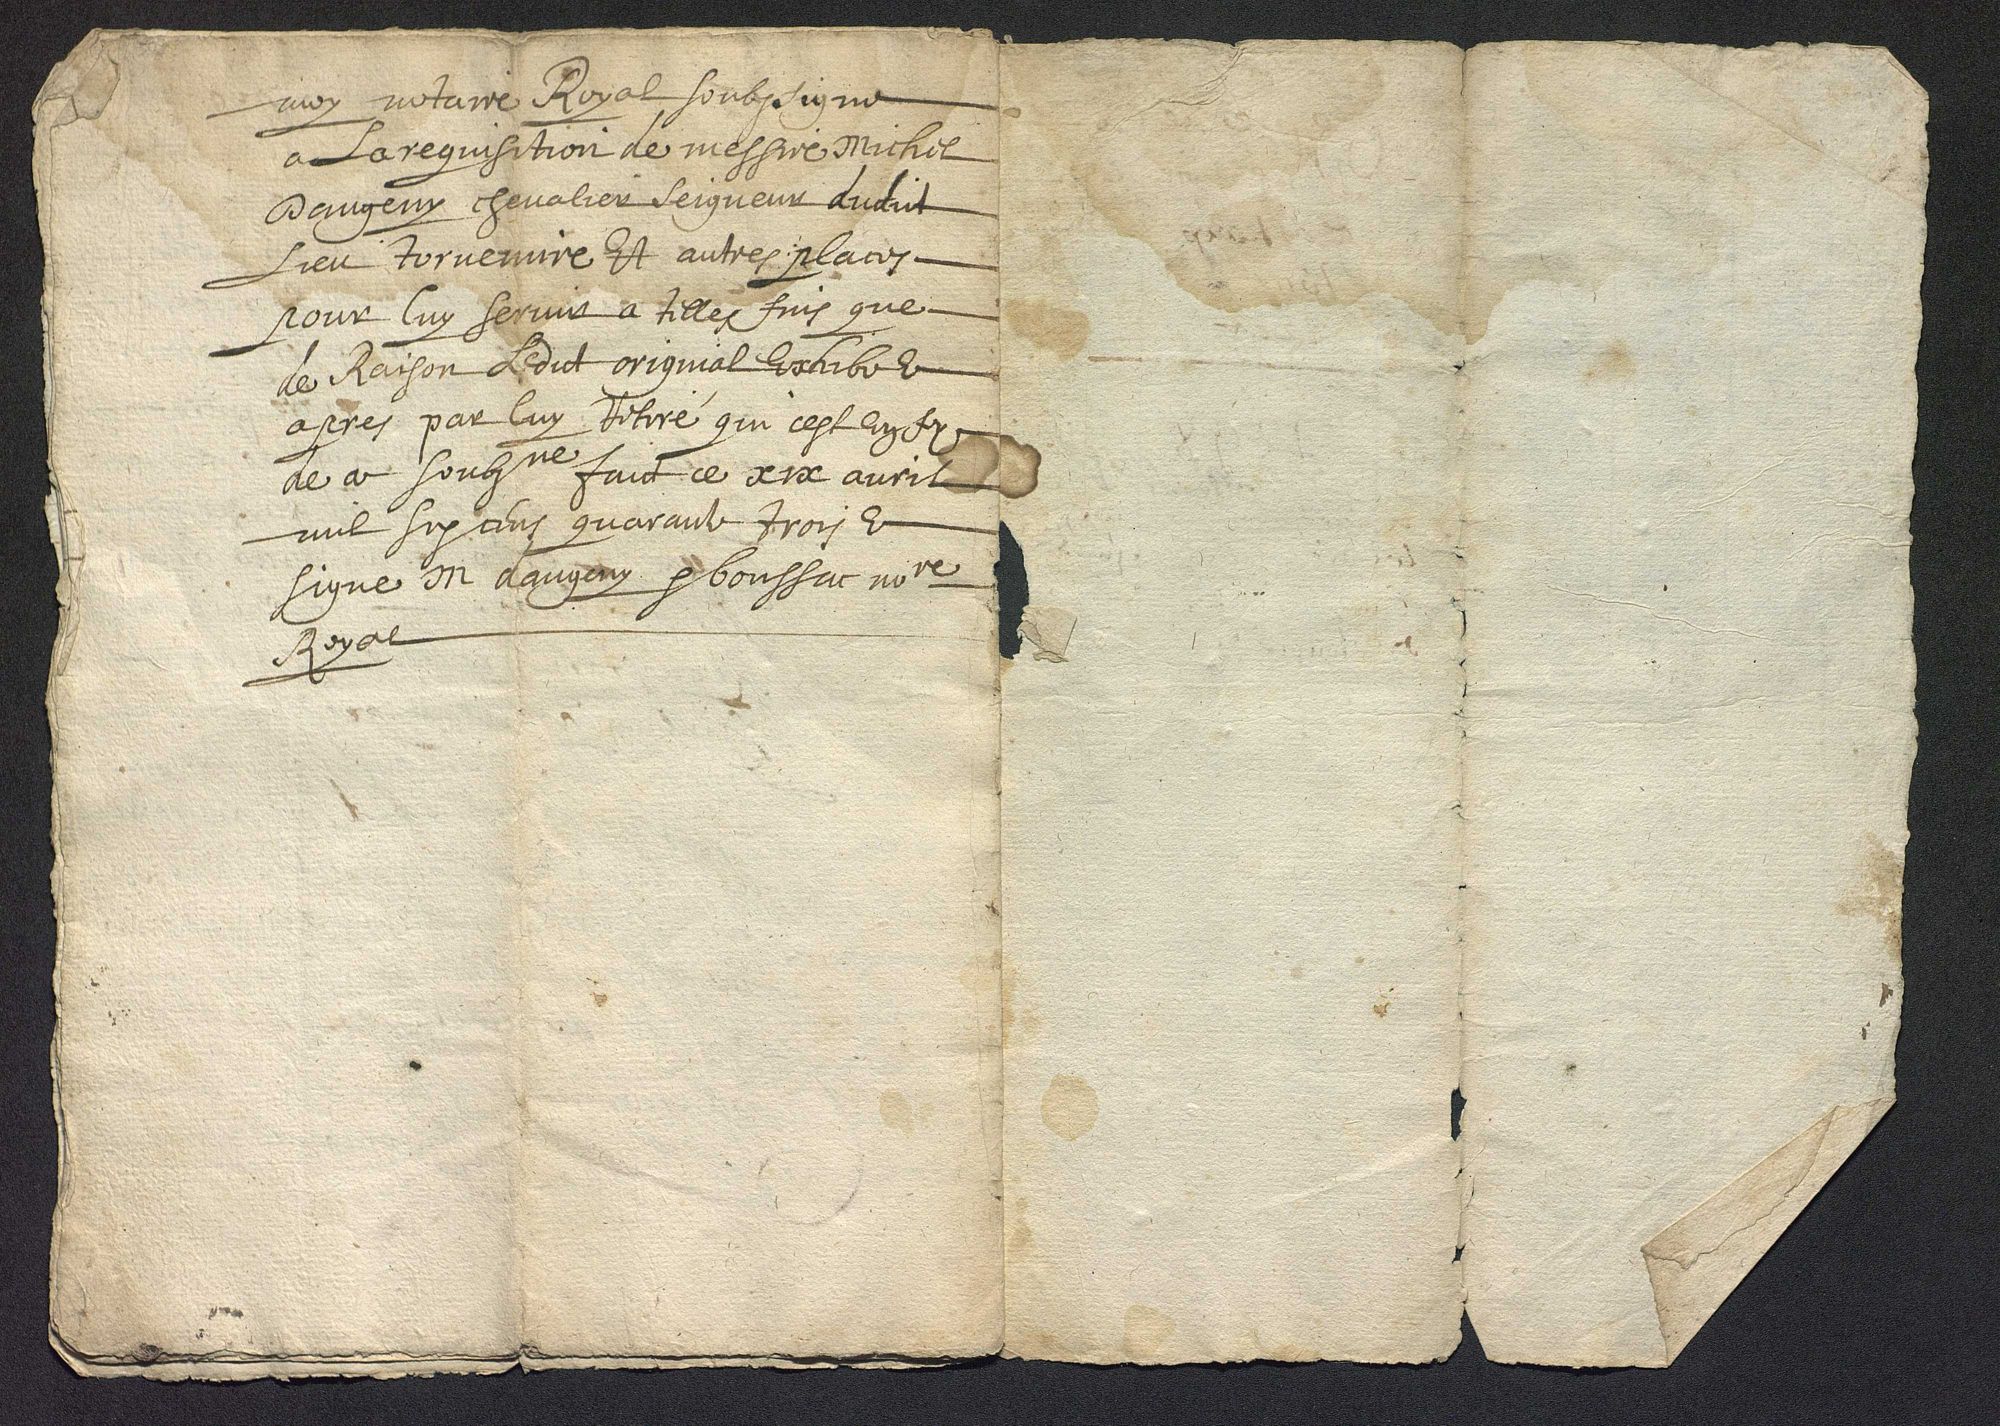 moy notaire Royal soubzsigne
a La requisition de messire Michel
Dangeny chevalier seigneur dudit
Lieu tornemire Et autres places
pour luy servir a telles fins que
de Raison Ledit original Exhibe E
apres par luy Retiré qui cest
de a soubzne fait ce xix avril
mil six cens quarante trois E
signe M dangeny boussac nore
Royal